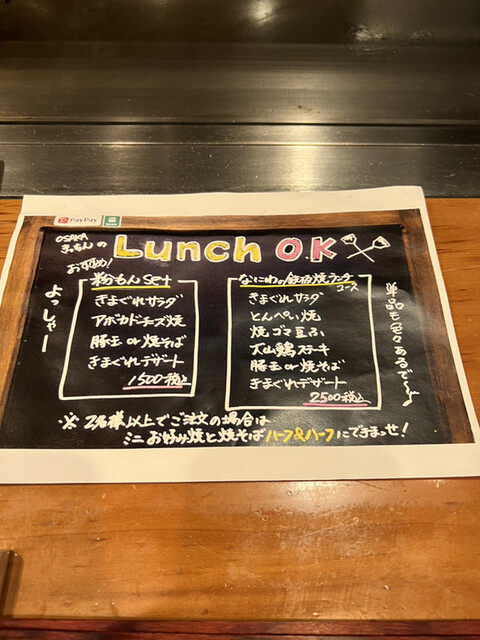 PayPay
OSAKA
きっちんの
おすすめ!
Lunch O.K
よっしゃー
粉もんset
きまぐれサラダ
アボカドチーズ焼
豚玉 or 焼そば
きまぐれデザート
1500税込
なにわの鉄板焼ランチ
コース
きまぐれサラダ
とんぺい焼
焼ゴマ豆ふ
大山鶏ステーキ
豚玉 or 焼そば
きまぐれデザート
2500税込
単品も色々あるで〜
※ 2名様以上でご注文の場合は
ミニお好み焼と焼そばハーフ&ハーフにできまっせ!